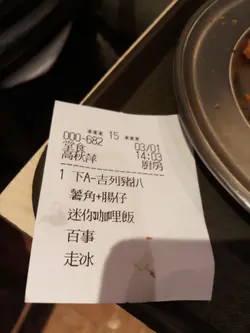 *** 15 ***
000-682 03/01
堂食 14:03
高秋萍 廚房
1 下A-吉列豬扒
薯角+腸仔
迷你咖哩飯
百事
走冰